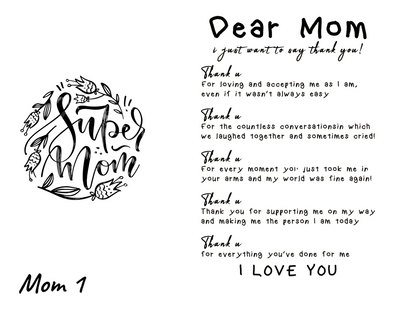 Super
Mom
Mom 1
Dear Mom
i just want to say thank you!
Thank u
For loving and accepting me as I am,
even if it wasn't always easy
Thank u
For the countless conversationsin which
we laughed together and sometimes cried!
Thank u
For every moment you just took me in
your arms and my world was fine again!
Thank u
Thank you for supporting me on my way
and making me the person I am today
Thank u
for everything you've done for me
I LOVE YOU